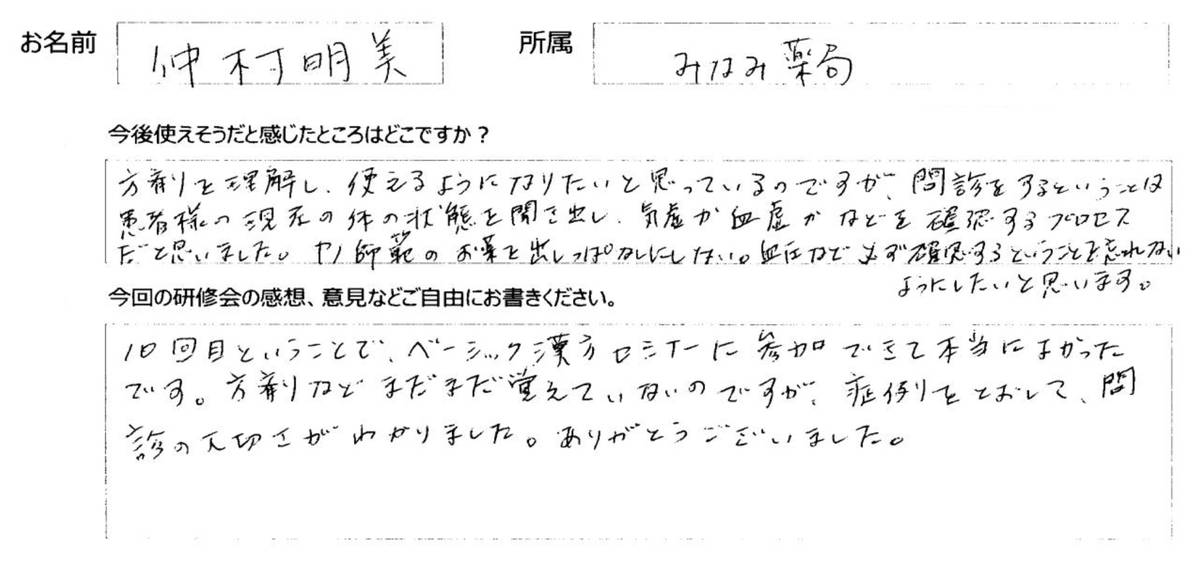 お名前 仲村明美 所属 みなみ薬局
今後使えそうだと感じたところはどこですか？
方剤を理解し、使えるようになりたいと思っているのですが、問診をするということは
患者様の現在の体の状態を聞き出し、気虚か血虚かなどを確認するプロセス
だと思いました。ヤノ師範のお薬を出しっぱなしにしない。血圧など必ず確認するということを忘れない
ようにしたいと思います。
今回の研修会の感想、意見などご自由にお書きください。
10回目ということで、ベーシック漢方セミナーに参加できて本当によかった
です。方剤などまだまだ覚えていないのですが、症例をとおして、問
診の大切さがわかりました。ありがとうございました。